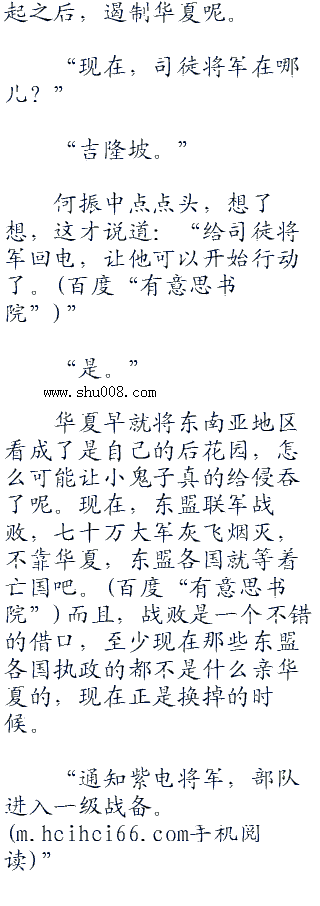 起之后，遏制华夏呢。
“现在，司徒将军在哪
儿？”
“吉隆坡。”
何振中点点头，想了
想，这才说道：“给司徒将
军回电，让他可以开始行动
了。(百度“有意思书
院”)”
“是。”
www.shu008.com
华夏早就将东南亚地区
看成了是自己的后花园，怎
么可能让小鬼子真的给侵吞
了呢。现在，东盟联军战
败，七十万大军灰飞烟灭，
不靠华夏，东盟各国就等着
亡国吧。(百度“有意思书
院”)而且，战败是一个不错
的借口，至少现在那些东盟
各国执政的都不是什么亲华
夏的，现在正是换掉的时
候。
“通知紫电将军，部队
进入一级战备。
(m.hcihci66.com手机阅
读)”